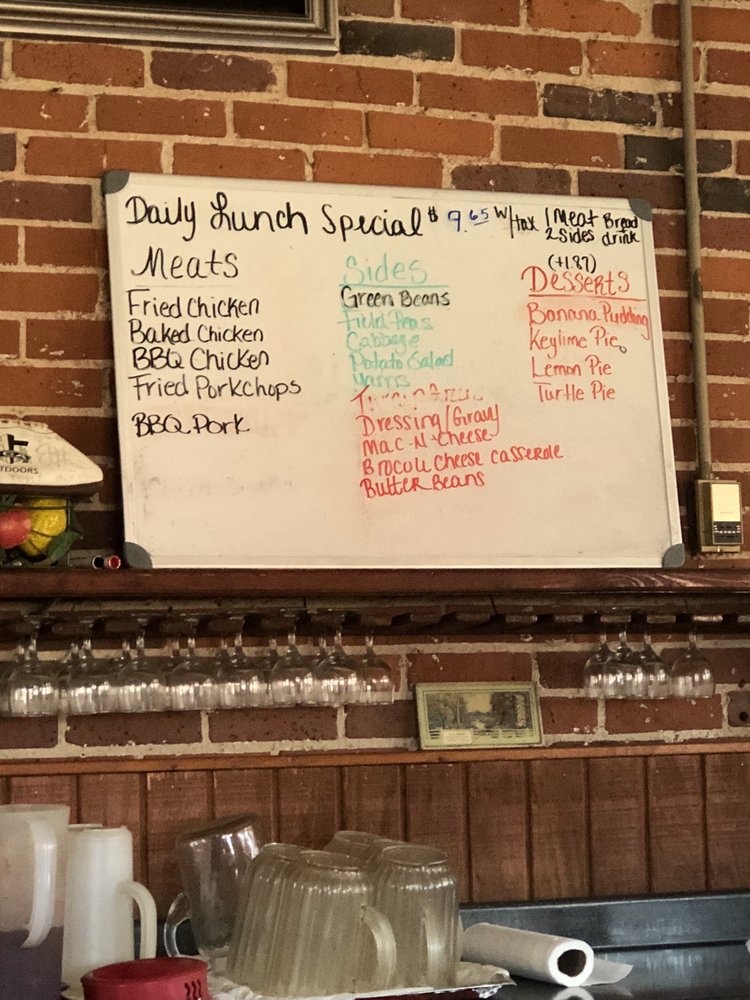 Daily Lunch Special $ 9.65 W/tax 1 Meat Bread
2 Sides drink
Meats
Fried Chicken
Baked Chicken
BBQ Chicken
Fried Porkchops
BBQ Pork
Sides
Green Beans
Field Peas
Cabbage
Potato Salad
Yams
Dressing/Gravy
Mac-N-Cheese
Brocoli Cheese casserole
Butter Beans
(+1.87)
Desserts
Banana Pudding
Keylime Pie
Lemon Pie
Turtle Pie
TDOORS